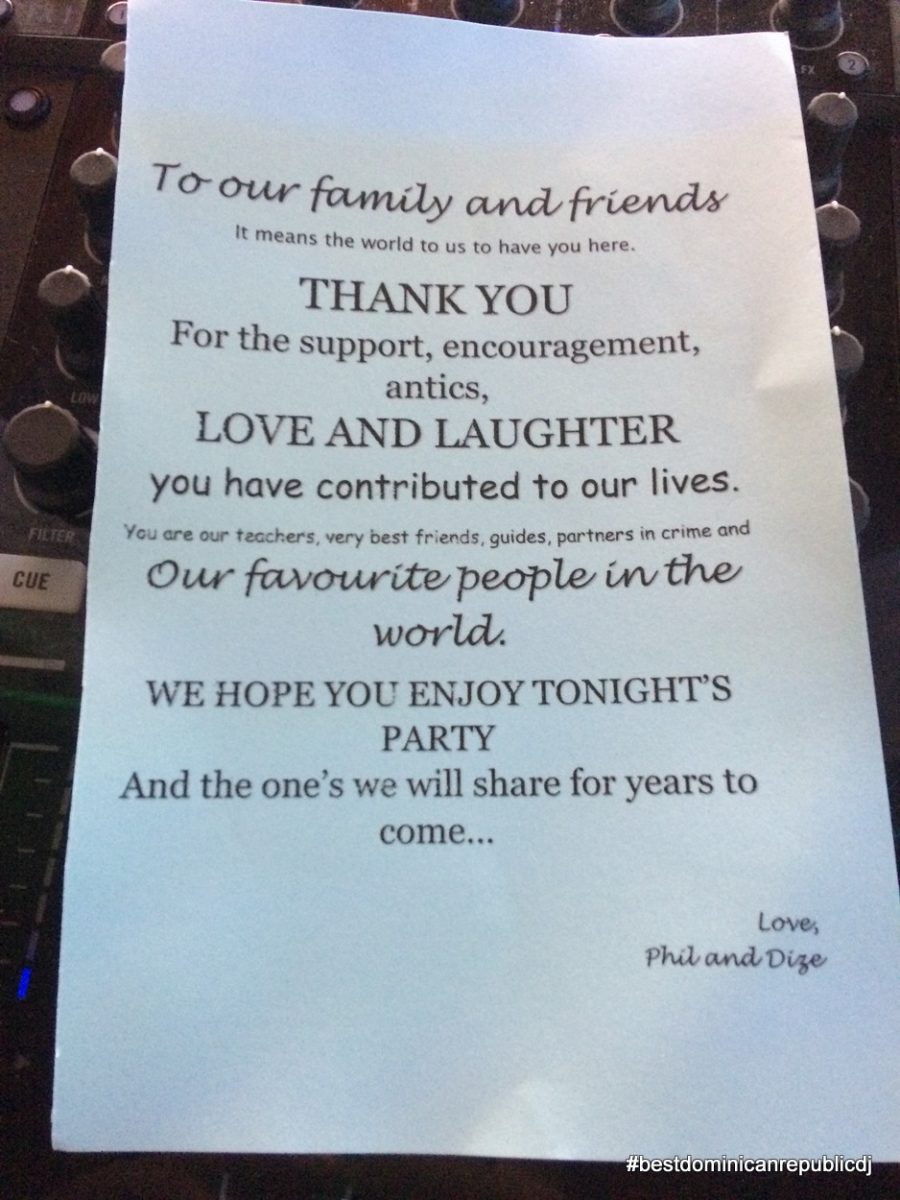 FX
2
To our family and friends
It means the world to us to have you here.
THANK YOU
For the support, encouragement,
antics,
LOVE AND LAUGHTER
you have contributed to our lives.
You are our teachers, very best friends, guides, partners in crime and
Our favourite people in the
world.
WE HOPE YOU ENJOY TONIGHT'S
PARTY
And the one's we will share for years to
come...
Love,
Phil and Dize
LOW
FILTER
CUE
#bestdominicanrepublicdj